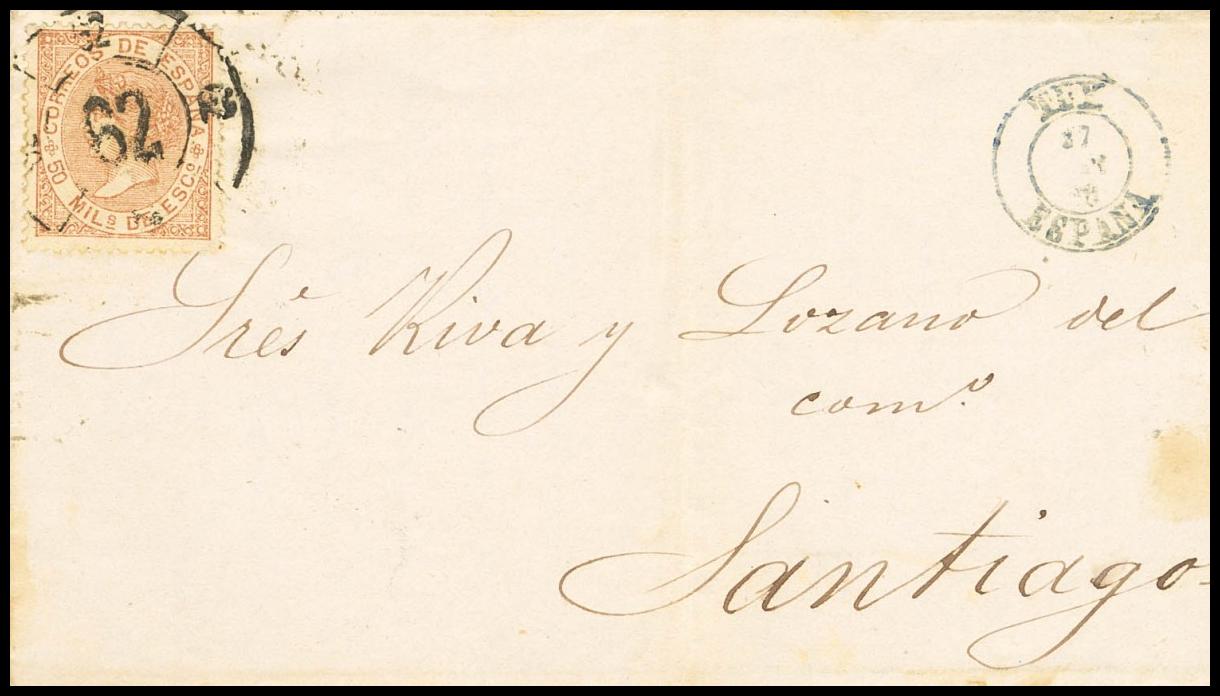 CORREOS DE ESPAÑA
62
50 MILS DE ESCO
TUY
ESPANA
Srēs Riva y Lozano del
comº
Santiago